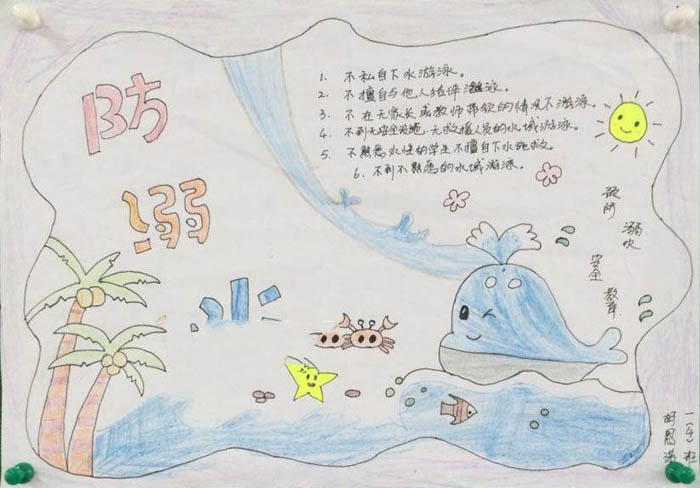 防
溺
水
1. 不私自下水游泳。
2. 不擅自与他人结伴游泳。
3. 不在无家长或教师带领的情况下游泳。
4. 不到无安全设施、无救援人员的水域游泳。
5. 不熟悉水性的学生不擅自下水施救。
6. 不到不熟悉的水域游泳。
预防
溺水
安全
教育
一（4）班